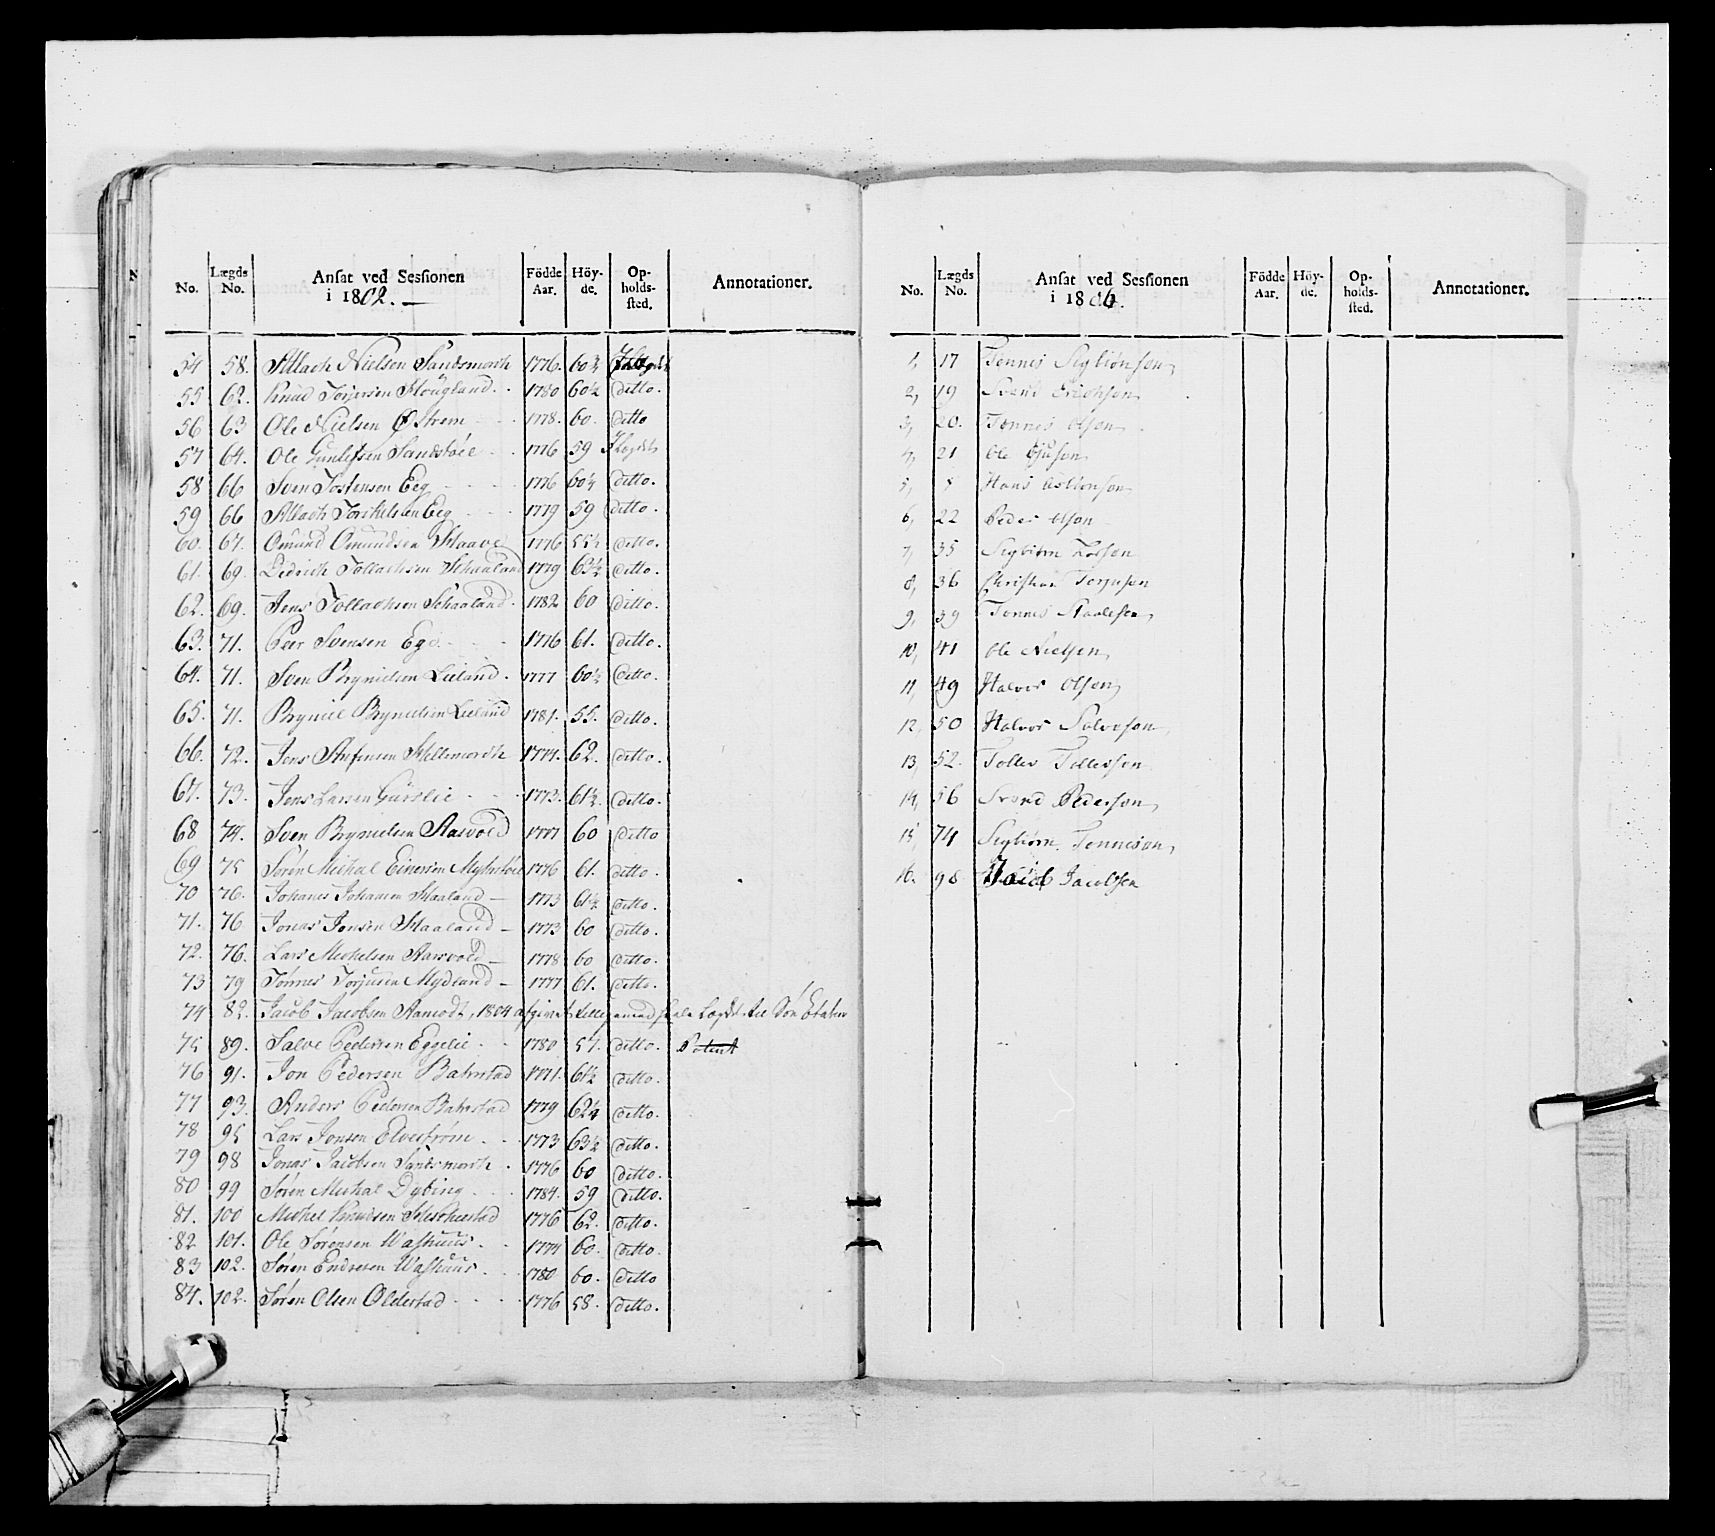 No. Lægds No. Ansat ved Sessionen i 1802. — Födde Aar. Höyde. Opholdssted. Annotationer.
54 58. Nielsen 1776. 60
55 62. Knud Torjersen Skougland 1780 60½ ditto.
56 63 Ole Nielsen Østrem 1778. 60. ditto
57 64. Ole Gunlefsen Sandstøee 1776 59
58 66 Sven Tostensen Eeg 1776 60½ ditto.
59 66 Eeg 1779 59 ditto.
60. 67. Omund Omundsen Staave 1776 55½ ditto.
61. 69. Didrich Tollachsen Schaaland 1779 63½ ditto.
62. 69. Jens Tollachsen Schaaland. 1782 60 ditto.
63. 71. Peer Svensen Ege 1776 61. ditto.
64. 71. Sven Brynielsen Lieland. 1777 60½ ditto.
65. 71. Bryniel Brynielsen Lieland 1781. 55. ditto.
66. 72. Jens 1774. 62. ditto.
67. 73. Jens Larsen 1773. 61½ ditto.
68 74. Sven Brynielsen Aasvold 1777 60 ditto
69 75 Sørn Michal Einersen 1776 61. ditto.
70 76. Johanes Johansen Staaland — 1773 61½ ditto.
71. 76 Jonas Jonsen Staaland — 1773 60 ditto.
72. 76. Lars Michelsen Aarsvold — 1778 60 ditto.
73 79 Tønnes Torjusen Mydland — 1777 61. ditto.
74 82. Jacob Jacobsen Aamodt, 1804 afgivet Lægd til Søe Etaten
75 89. Salve Pedersen Eggelie 1780 57. ditto.
76 91. Jon Pedersen Bahrstad 1771. 61½ ditto.
77 93. Anders Pedersen Bahrstad 1779 62¼ ditto.
78 95 Lars Jonsen Elvestrøm 1773 63½ ditto.
79 98 Jonas Jacobsen Sandsmark 1776 60 ditto.
80 99 Søren Michal Dybing 1784. 59 ditto.
81. 100 Michel Knudsen 1776 62. ditto.
82 101. Ole Sørensen Washuus. 1774 60. ditto.
83 102. Søren Endresen Washuus. 1780 60. ditto
84. 102. Søren Olsen Oldestad 1776 58. ditto.
No. Lægds No. Ansat ved Sessionen i 1806. Födde Aar. Höyde. Opholdssted. Annotationer.
1, 17 Tonnes Sigbiönson
2, 19 Svend Erichson
3, 20. Tonnes Olson
4, 21 Ole
5, Hans
6, 22 Peder Olson
7, 35 Sigbiörn
8, 36 Christian Torjusen
9, 39 Tonnes Staalesen
10, 41 Ole Nielsen
11, 49 Halvor Olson
12, 50 Halvor Salveson
13, 52. Tolles Tollesson
14, 56 Svend Pederson
15, 74 Sigbiörn Tonneson
16. 98 Jacob Jacobsen